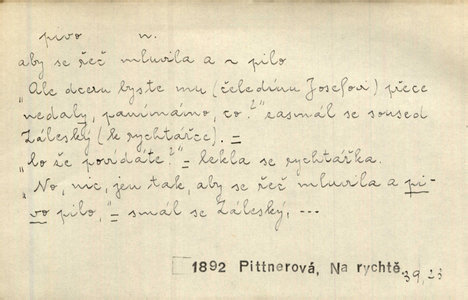 pivo n.
aby se řeč mluvila a ~ pilo
"Ale dceru byste mu (čeledínu Josefovi) přece
nedaly, panímámo, co?" zasmál se soused
Záleský (k rychtářce). =
"Co že povídáte?" = lekla se rychtářka.
"No, nic, jen tak, aby se řeč mluvila a pi-
vo pilo," = smál se Záleský, ---
1892 Pittnerová, Na rychtě.
39, 23